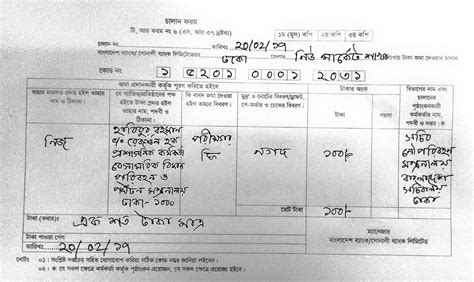 চালান ফরম
টি, আর ফরম নং ৬ (এস, আর ৩৭ দ্রষ্টব্য)
১ম (মূল) কপি ২য় কপি ৩য় কপি
চালান নং তারিখঃ ২০/০২/১৭
বাংলাদেশ ব্যাংক/সোনালী ব্যাংক লিমিটেডের ঢাকা জেলার নিউ মার্কেট শাখায় টাকা জমা দেওয়ার চালান
কোড নং ১ ৫২০১ ০০০১ ২০৩১
জমা প্রদানকারী কর্তৃক পূরণ করিতে হইবে
টাকার অংক
যাহার মারফত প্রদত্ত হইল তাহার নাম ও ঠিকানা।
যে ব্যক্তির/প্রতিষ্ঠানের পক্ষ হইতে টাকা প্রদত্ত হইল তাহার নাম, পদবী ও ঠিকানা।
কি বাবদ জমা দেওয়া হইল তাহার বিবরণ
মুদ্রা ও নোটের বিবরণ/ড্রাফট, পে-অর্ডার ও চেকের বিবরণ।
টাকা পয়সা
বিভাগের নাম এবং চালানের পৃষ্ঠাংকনকারী কর্মকর্তার নাম, পদবী ও দপ্তর।
নিজ
প্রশাসনিক কর্মকর্তা
বেসামরিক বিমান
পরিবহন ও
পর্যটন মন্ত্রণালয়
ঢাকা- ১০০০
পরীক্ষার
ফি
নগদ
১০০/-
সচিব
নৌপরিবহন
মন্ত্রণালয়
বাংলাদেশ
সচিবালয়
ঢাকা
মোট টাকা ১০০/-
টাকা (কথায়)ঃ এক শত টাকা মাত্র
টাকা পাওয়া গেল
তারিখঃ ২০/০২/১৭
ম্যানেজার
বাংলাদেশ ব্যাংক/সোনালী ব্যাংক লিমিটেড
নোটঃ ০১। সংশ্লিষ্ট দপ্তরের সহিত যোগাযোগ করিয়া সঠিক কোড নম্বর জানিয়া লইবেন।
০২। * যে সকল ক্ষেত্রে কর্মকর্তা কর্তৃক পৃষ্ঠাংকন প্রয়োজন, সে সকল ক্ষেত্রে প্রযোজ্য হইবে।